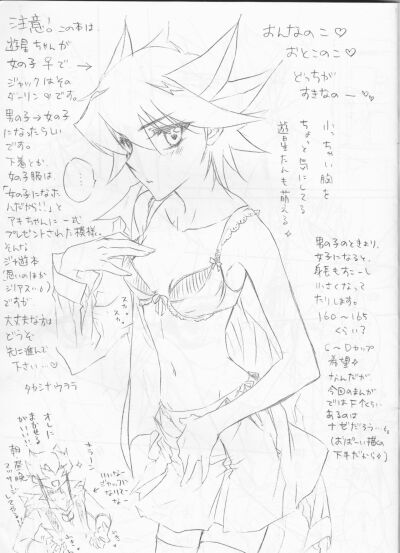 注意!この本は、
遊星ちゃんが
女の子半で、→
ジャックはその
ダーリン♡です。
男の子→女の子
になったらしい
です。
下着とか
女の子服は、
「女の子になった
んだから!!」と
アキちゃんに一式
プレゼントされた模様。
そんな
ジャ遊本
(思いのほか
シリアス)
ですが
大丈夫な方は
どうぞ
先に進んで
下さい…♡
おんなのこ♡
おとこのこ♡
どっちが
すきなのー♡♡
小っちゃい胸を
ちょっと気にしてる
遊星たんも萌える
男の子のときより、
女子になると、
身長もすこーし
小さくなって
たりします。
160～165
くらい?
C～Dカップ
希望
なんだが
今回のまんが
ではFくらい
あるのは
ナゼだろう…
(おっぱい描くの
下手だから)
スカ
スカ
オレに
まかせるが
いい!!
毎晩
マッサージ
してやる